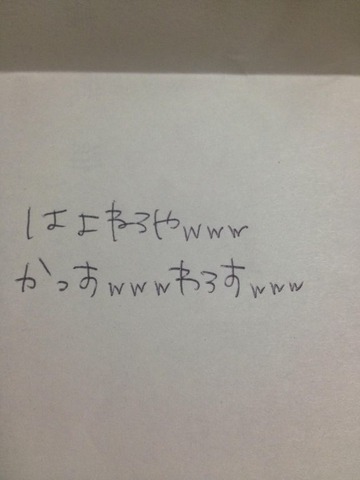 はよねろやwww
かっすwwwわろすwww